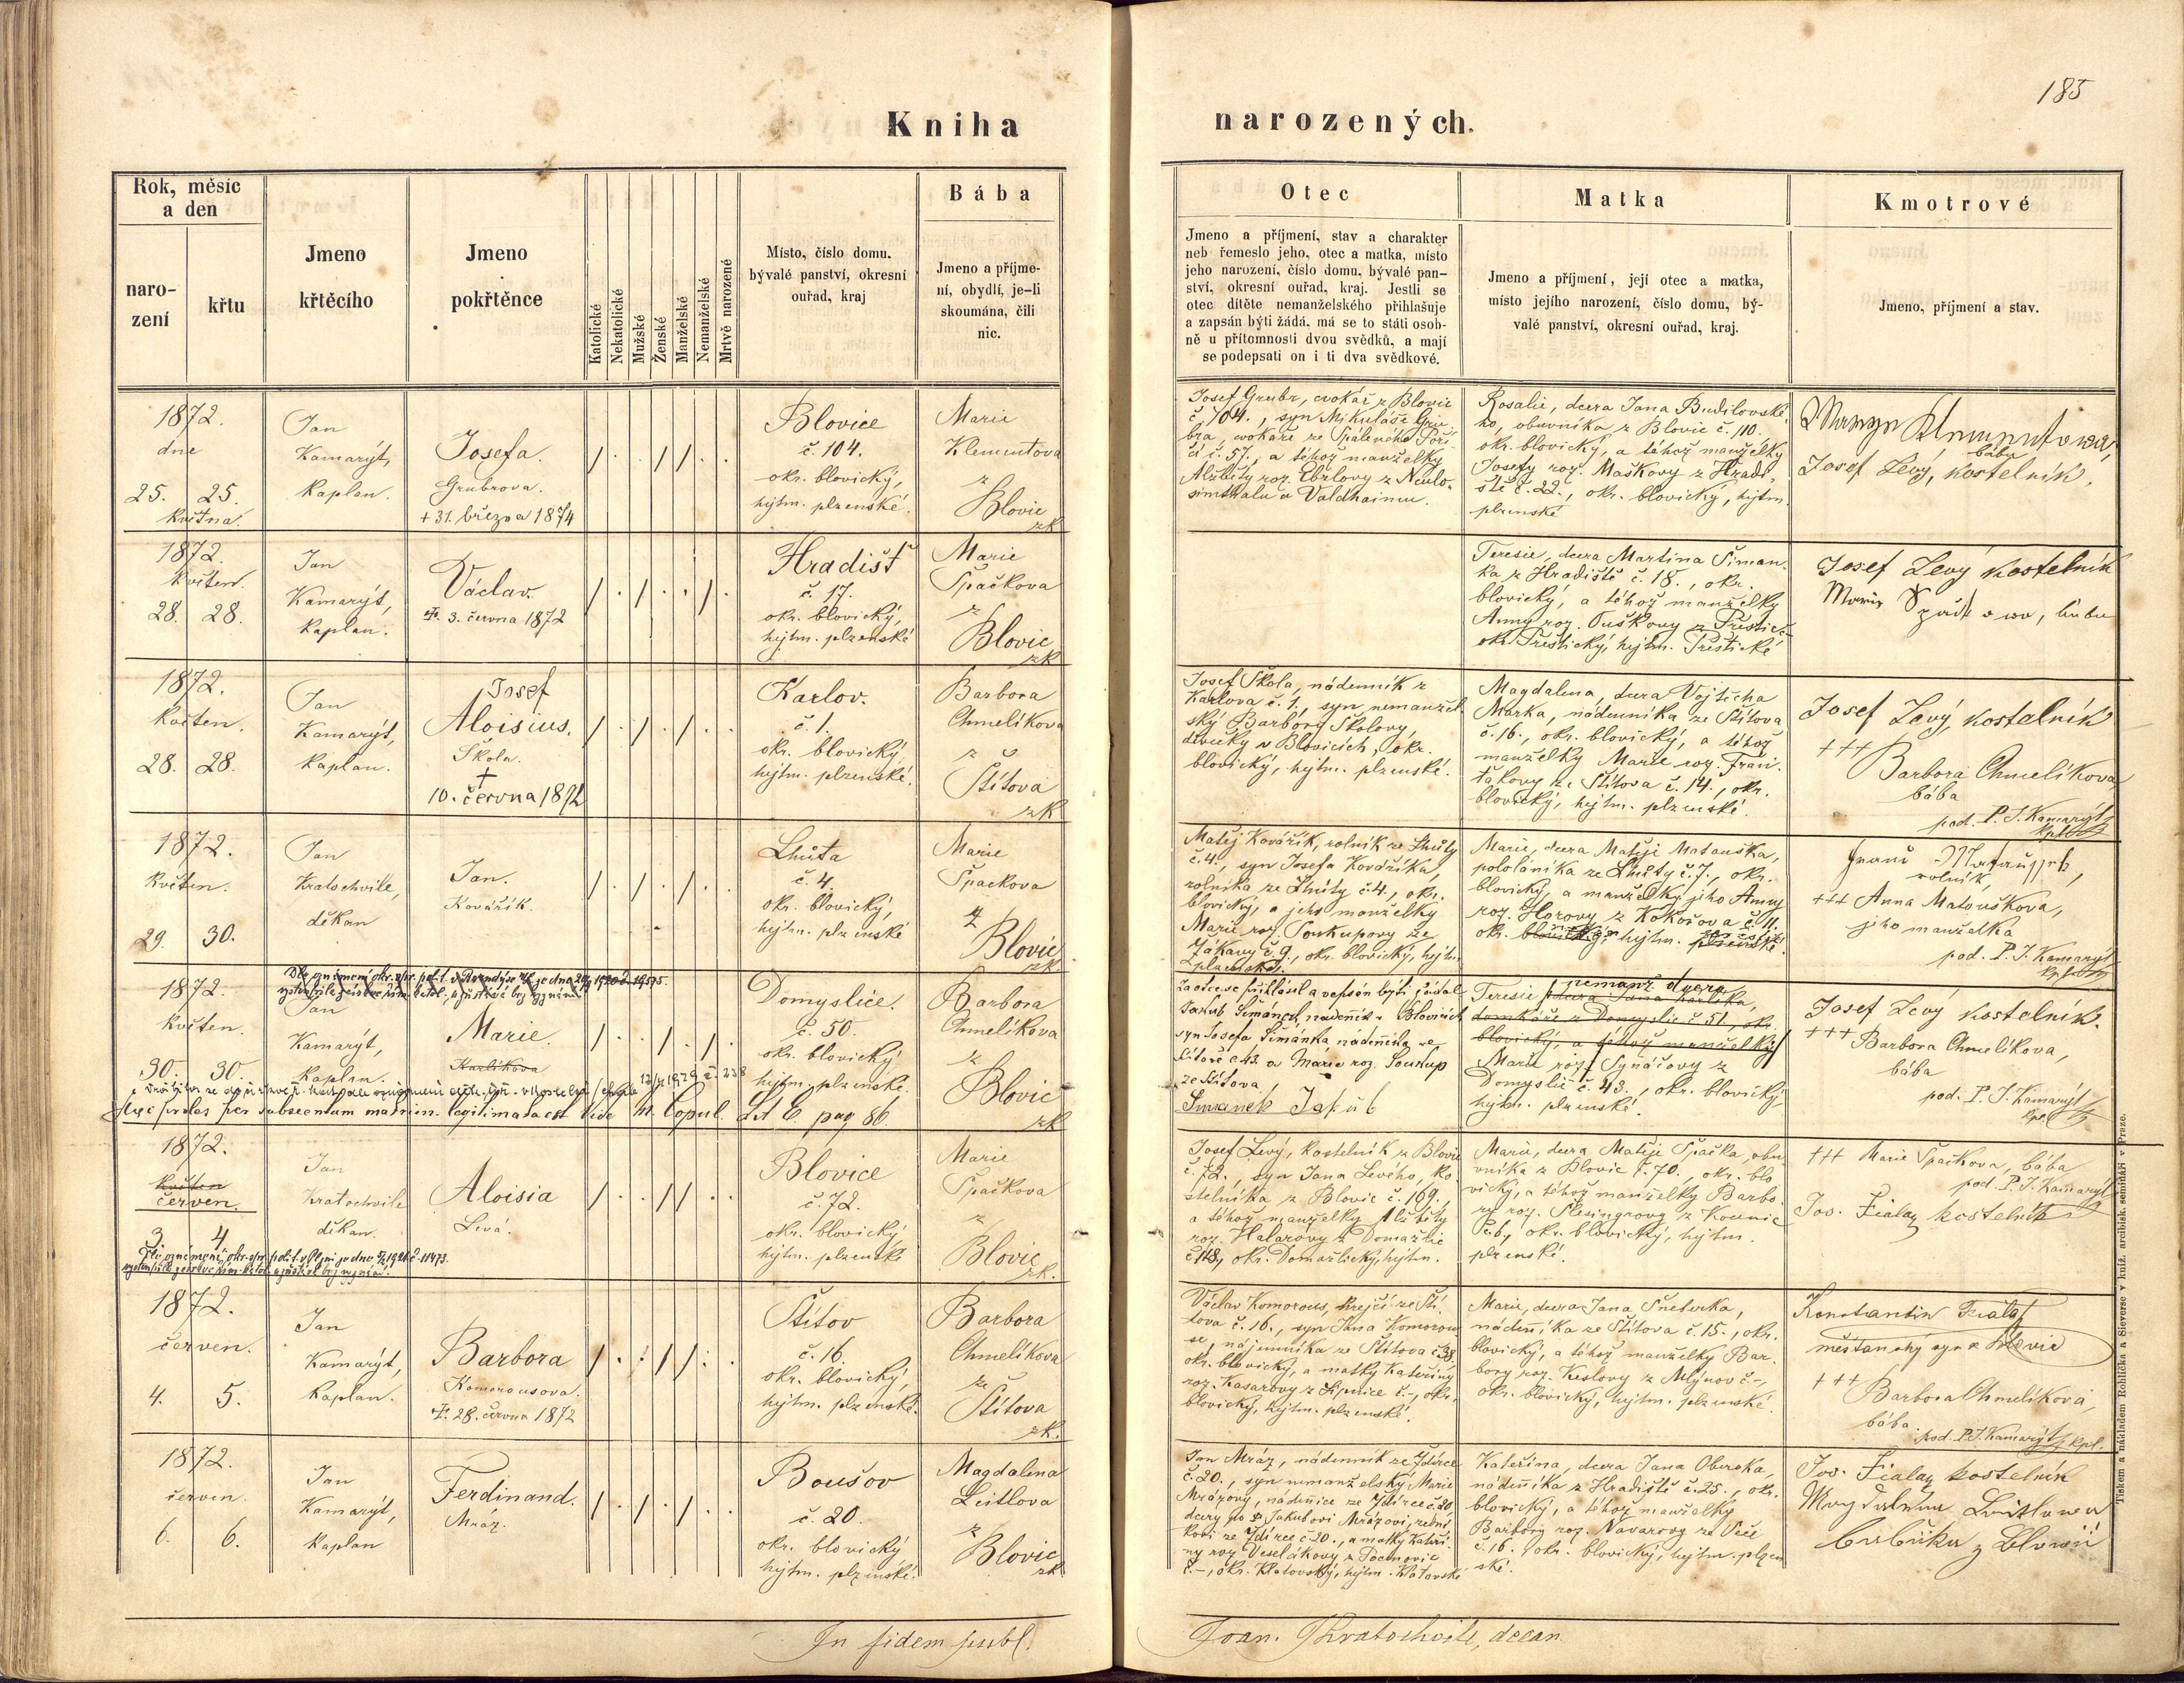 185
Kniha narozených.
Rok, měsíc
a den
naro-
zení
křtu
Jmeno
křtěcího
Jmeno
pokřtěnce
Katolické
Nekatolické
Mužské
Ženské
Manželské
Nemanželské
Mrtvě narozené
Místo, číslo domu.
bývalé panství, okresní
ouřad, kraj
Bába
Jmeno a příjme-
ní, obydlí, je-li
skoumána, čili
nic.
Otec
Jmeno a příjmení, stav a charakter
neb řemeslo jeho, otec a matka, místo
jeho narození, číslo domu, bývalé pan-
ství, okresní ouřad, kraj. Jestli se
otec dítěte nemanželského přihlašuje
a zapsán býti žádá, má se to státi osob-
ně u přítomnosti dvou svědků, a mají
se podepsati on i ti dva svědkové.
Matka
Jmeno a příjmení, její otec a matka,
místo jejího narození, číslo domu, bý-
valé panství, okresní ouřad, kraj.
Kmotrové
Jmeno, příjmení a stav.
1872.
dne
25. 25.
května.
Jan
Kamarýt,
kaplan.
Josefa.
Grubrova.
+ 31. března 1874
Blovice
č. 104.
okr. blovický,
hejtm. plzenské.
Marie
Klementova
z
Blovic
zk
Josef Grubr, cvokář z Blovic
č. 104., syn Mikuláše Gru-
bra, cvokáře ze Spáleného Poří-
čí č. 57., a téhož manželky
Alžběty roz.
Rosalie, dcera Jana Budilovské-
ho, obuvníka z Blovic č. 110.
okr. blovický, a téhož manželky
Josefy roz. Maškovy z Hradi-
ště č. 22., okr. blovický, hejtm.
plzenské
bába
Josef Levý, kostelník.
1872.
květen.
28. 28.
Jan
Kamarýt,
kaplan.
Václav.
+. 3. června 1872
Hradišť
č. 17.
okr. blovický,
hejtm. plzenské
Marie
Špačkova
z
Blovic
zk
Teresie, dcera Martina Šiman-
ka z Hradiště č. 18., okr.
blovický, a téhož manželky
Anny roz. Tuškovy z Přeštic
okr. Přeštický, hejtm. Přeštické
Josef Levý kostelník
1872.
květen.
28. 28.
Jan
Kamarýt,
kaplan.
Josef
Aloisius.
Škola.
+
10. června 1892
Karlov.
č. 1.
okr. blovický,
hejtm. plzenské.
Barbora
Chmelíkova
z
Štítova
zk
Josef Škola, nádenník z
Karlova č. 1., syn nemanžel-
ský Barbory Školovy,
děvečky v Blovicích, okr.
blovický, hejtm. plzenské.
Magdalena, dcera Vojtěcha
Marka, nádenníka ze Štítova
č. 16., okr. blovický, a téhož
manželky Marie roz. Fran-
ťákovy ze Štítova č. 14., okr.
blovický, hejtm. plzenské.
Josef Levý, kostelník
+++
Barbora Chmelíkova
bába
pod. P. J. Kamarýt
kpl
1872.
květen.
29. 30.
Jan
Kratochvile,
děkan
Jan.
Kovářík.
Lhůta
č. 4.
okr. blovický,
hejtm. plzenské
Marie
Špačkova
z
Blovic
zk
Matěj Kovářík, rolník ze Lhůty
č. 4., syn Josefa Kováříka,
rolníka ze Lhůty č. 4., okr.
blovický, a jeho manželky
Marie roz. Soukupovy ze
Žákavy č. 9., okr. blovický, hejtm.
plzenské.
Marie, dcera Matěje Matouška,
pololáníka ze Lhůty č. 7., okr.
blovický, a manželky jeho Anny
roz. Horovy z Kokořova č. 11.
okr. blovický, hejtm. plzenské
rolník,
+++ Anna Matouškova,
jeho manželka
pod. P. J. Kamarýt
kpl
1872.
květen.
30. 30.
Jan
Kamarýt,
kaplan.
Marie.
Karlíkova
Domyslice.
č. 50.
okr. blovický
hejtm. plzenské.
Barbora
Chmelíkova
z
Blovic
zk
per subsequum matrim. legitimata est vide M. Copul. lit C. pag 86.
Za otce se přihlásil a vepsán býti žádal
Jakub Šimánek, nádeník v Blovicích
syn Josefa Šimánka nádeníka ve
Štítově č. 42 a Marie roz. Soukup
ze Štítova.
Šimanek Jakub
nemanž. dcera
Teresie dcera Jana Karlíka,
domkáře z Domyslic č. 51., okr.
blovický, a téhož manželky
Marie roz. Synáčovy z
Domyslic č. 43., okr. blovický,
hejtm. plzenské.
Josef Levý kostelník.
+++ Barbora Chmelíkova,
bába
pod. P. J. Kamarýt
kpl.
1872.
květen
červen.
3. 4.
Jan
Kratochvile
děkan.
Aloisia
Levá.
Blovice
č. 72.
okr. blovický,
hejtm. plzenské
Marie
Špačkova
z
Blovic
zk.
Josef Levý, kostelník z Blovic
č. 72., syn Jana Levého, ko-
stelníka z Blovic č. 169.,
a téhož manželky Alžběty
roz. Halarovy z Domažlic
č. 148, okr. Domažlický, hejtm.
Marie, dcera Matěje Špačka, obu-
vníka z Blovic č. 70., okr. blo-
vický, a téhož manželky Barbo-
ry roz. Šlesingrovy z Kounic
okr. blovický, hejtm.
plzenské.
+++ Marie Špačkova, bába
pod. P. J. Kamarýt
Jos. Fiala, kostelník
1872.
červen.
4. 5.
Jan
Kamarýt,
kaplan.
Barbora
Komorousova.
+. 28. června 1872
Štítov
č. 16.
okr. blovický,
hejtm. plzenské.
Barbora
Chmelíkova
ze
Štítova
zk.
Václav Komorous, krejčí ze Ští-
tova č. 16., syn Jana Komorou-
se, nájemníka ze Štítova č. 38.
okr. blovický, a matky Kateřiny
roz. Kasarovy z Lipnice č. -, okr.
blovický, hejtm. plzenské.
Marie, dcera Jana Šneberka,
nádeníka ze Štítova č. 15., okr.
blovický, a téhož manželky Bar-
bory roz. Keslovy z Mlýnov č. -,
okr. blovický, hejtm. plzenské.
Konstantin Fiala
měšťanský syn z Blovic
+++
Barbora Chmelíkova,
bába.
pod. P. J. Kamarýt kpl.
1872.
červen.
6. 6.
Jan
Kamarýt,
kaplan
Ferdinand.
Mráz.
Boušov
č. 20.
okr. blovický
hejtm. plzenské.
Magdalena
Leitlova
z
Blovic
zk
Jan Mráz, nádenník ze Ždírce
č. 20., syn nemanželský Marie
Mrázovy, nádenice ze Ždírce č. 20
dcery po Jakubovi Mrázovi, sední-
kovi ze Ždírce č. 20., a matky Kateři-
ny roz. Veselákovy z Pocinovic
č. -, okr. Klatovský, hejtm. Klatovské
Kateřina, dcera Jana Oberka,
nádeníka z Hradiště č. 25., okr.
blovický, a téhož manželky
Barbory roz. Navarovy ze Seče
č. 16. okr. blovický, hejtm. plzen-
ské.
Jos. Fiala, kostelník
In fidem publ. Joan. Kratochvile, decan
Tiskem a nákladem Rohlíčka a Sieverse v kníž. arcibisk. semináři v Praze.